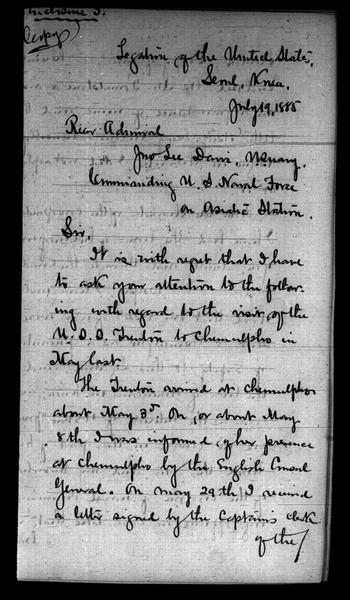 Inclosure 3.
Copy
Legation of the United States,
Seoul, Korea.
July 19, 1885
Rear Admiral
Jno Lee Davis, U.S. Navy.
Commanding U. S. Naval Force
on Asiatic Station.
Sir,
It is with regret that I have
to ask your attention to the follow-
ing with regard to the visit of the
U. S. S. Trenton to Chemulpho in
May last.
The Trenton arrived at Chemulpho
about May 3d. On, or about May
8th I was informed of her presence
at Chemulpho by the English Consul
General. On May 29th I received
a letter signed by the Captain's clerk
of the/